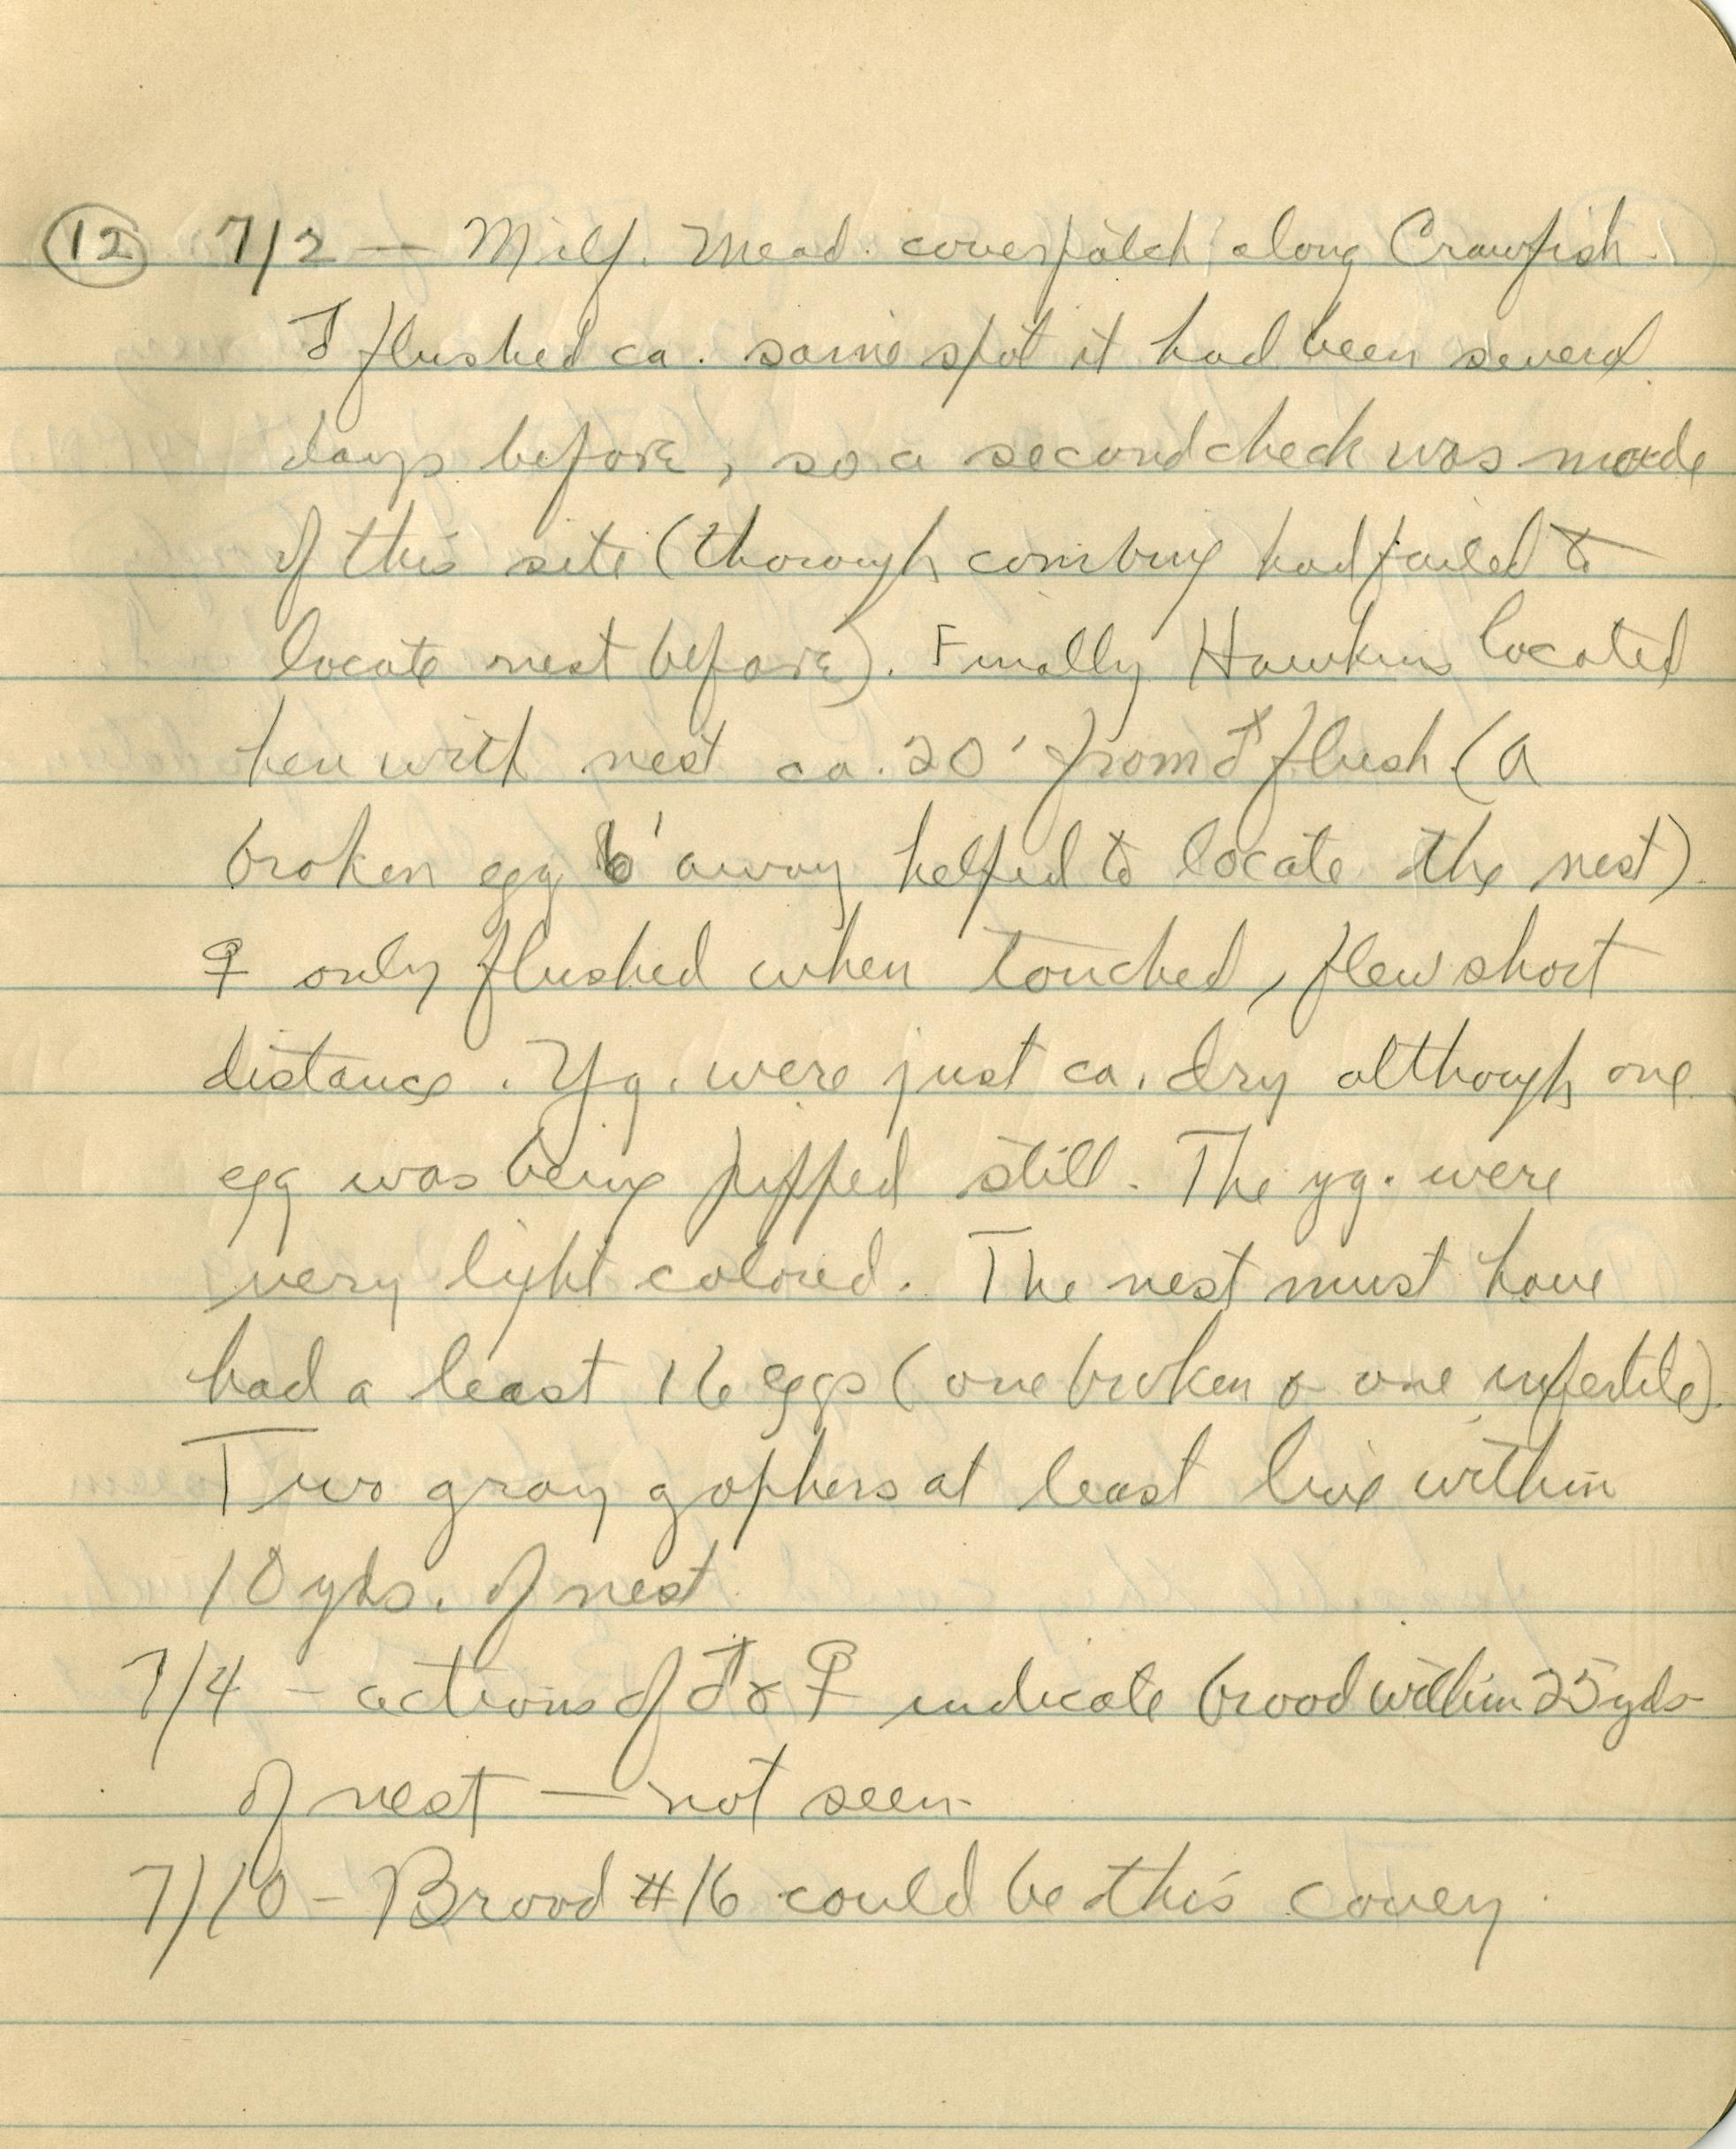 (12) 7/2 — Milf. Mead. coverpatch along Crawfish.
♂ flushed ca. same spot it had been several
days before, so a second check was made
of this site (thorough combing had failed to
locate nest before). Finally Hawkins located
hen with nest ca. 20' from ♂ flush (a
broken egg 6' away helped to locate the nest).
♀ only flushed when touched, flew short
distance. Yg. were just ca. dry although one
egg was being pipped still. The yg. were
very light colored. The nest must have
had a least 16 eggs (one broken & one infertile).
Two gray gophers at least live within
10 yds. of nest
7/4 – actions of ♂ & ♀ indicate brood within 25 yds
of nest — not seen.
7/10 – Brood #16 could be this covey.